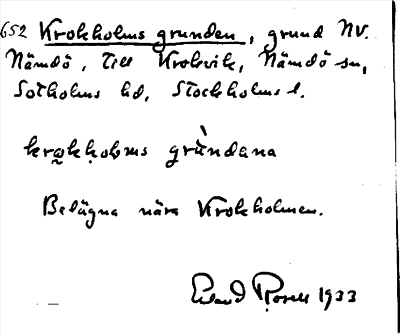 652 Krokholms grunden, grund NV.
Nämdö, Till Krokvik, Nämdö sn,
Sotholms hd, Stockholms l.
krokholms grùndana
Belägna nära Krokholmen.
Erland Rosell 1933